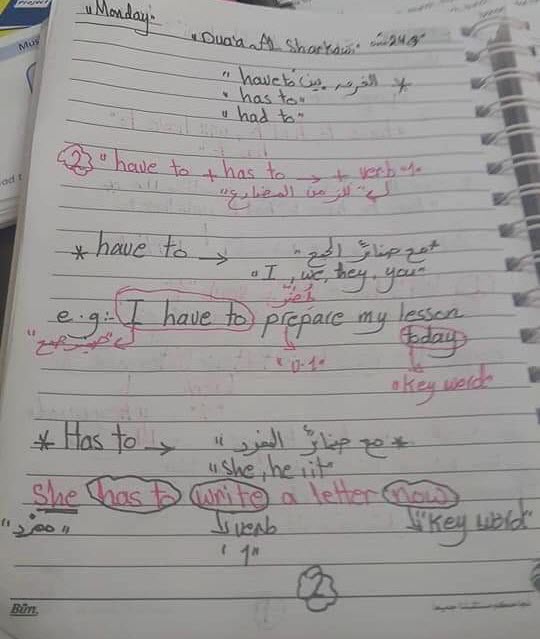 "Monday"
"Duaa Al Sharkawi"
* الفرق بين "have to"
"has to"
"had to"
2 "have to + has to → + verb "1"
"الزمن المضارع"
* have to → *مع ضمائر الجمع"
"I, we, they, you"
أُحضّر
e.g:- I have to prepare my lesson
today
"ضمير جمع"
"v.1"
"Key word"
* Has to → * مع ضمائر المفرد"
"she, he, it"
She has to write a letter now
"مفرد" verb "Key word"
"1"
2
Bun.